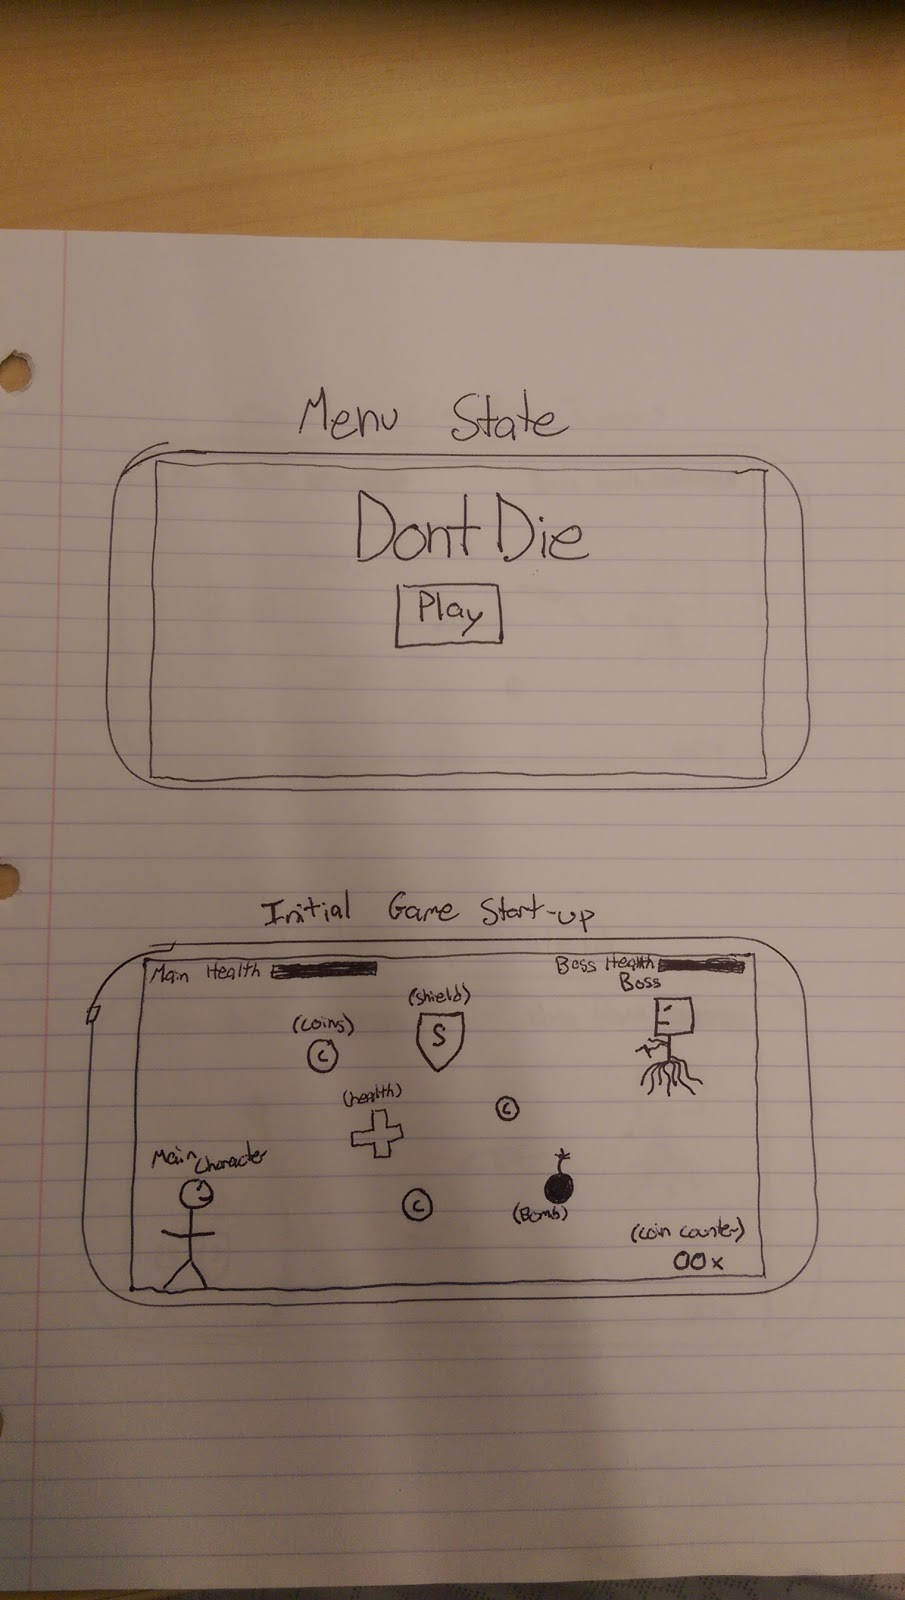 Menu State
Dont Die
Play
Initial Game Start-up
Main Health
Boss Health
Boss
(shield)
S
(coins)
C
(health)
C
Main Character
C
(Bomb)
(coin counter)
00x